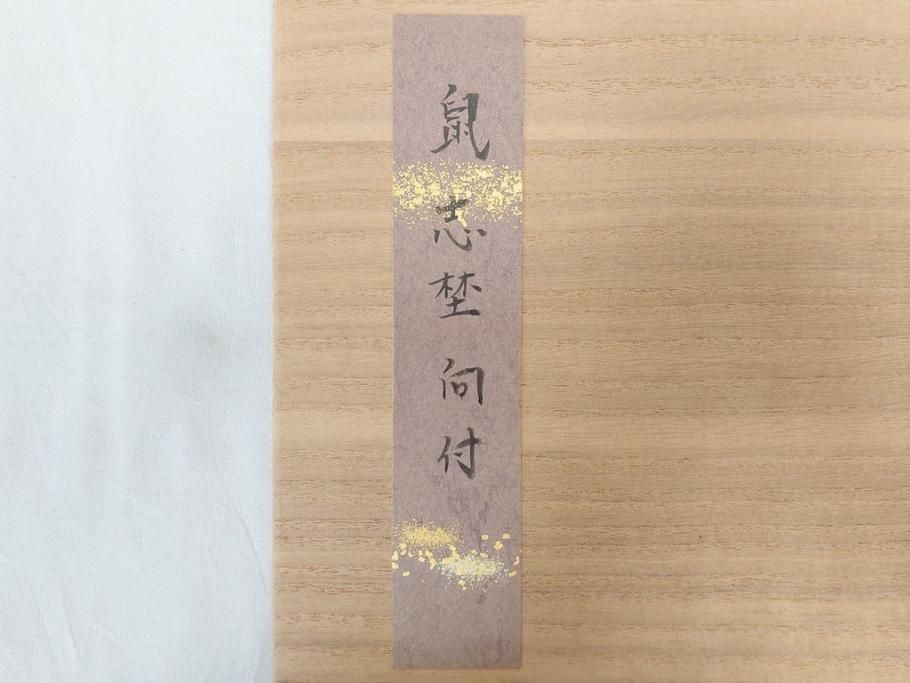 鼠志埜向付